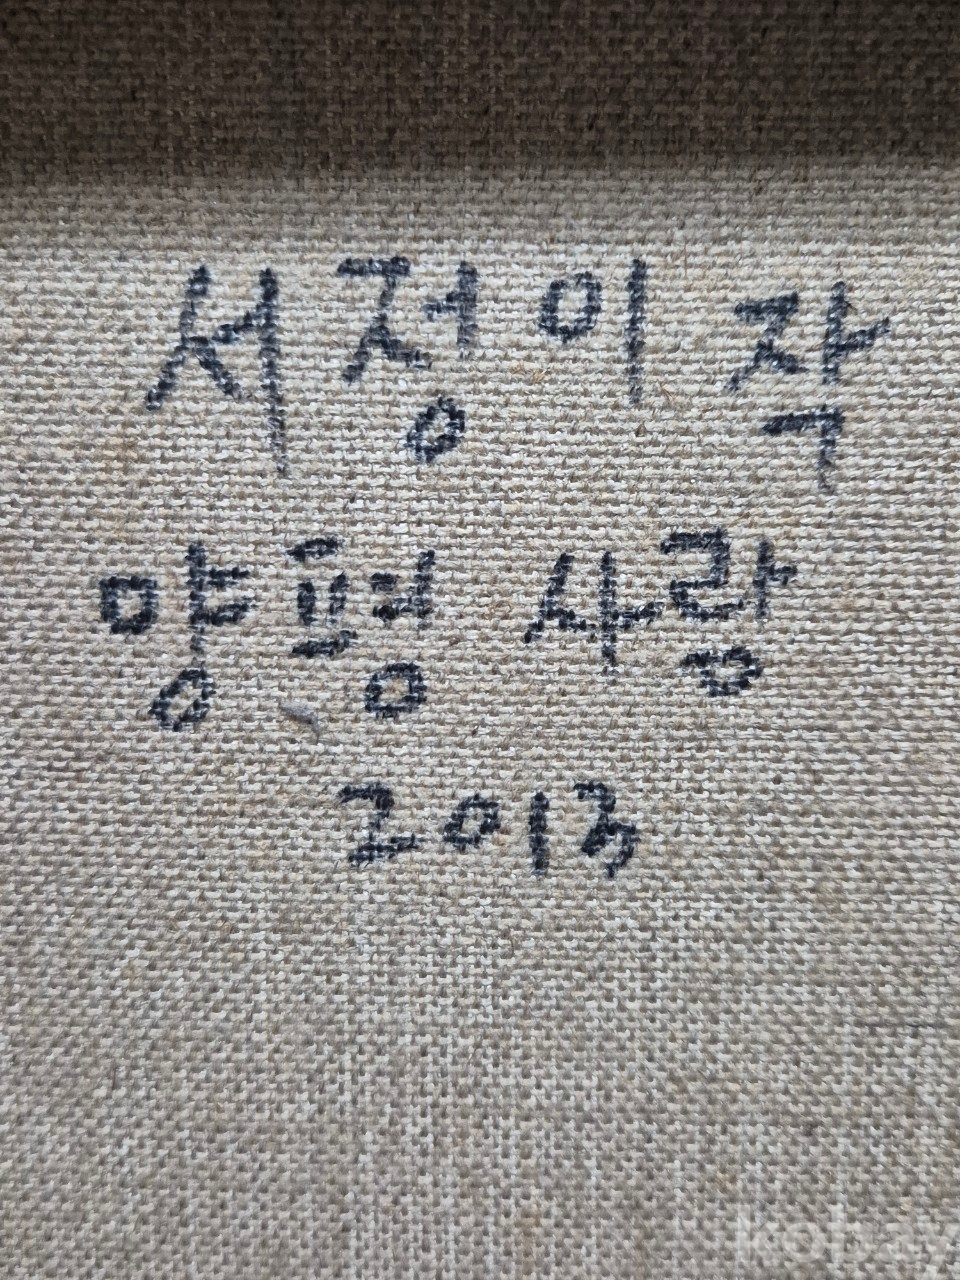 서정이 작
양평 사랑
2013
kobay